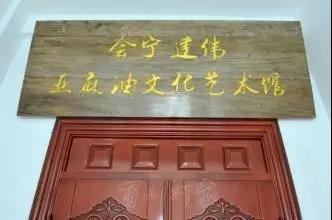 会宁建伟
亚麻油文化艺术馆